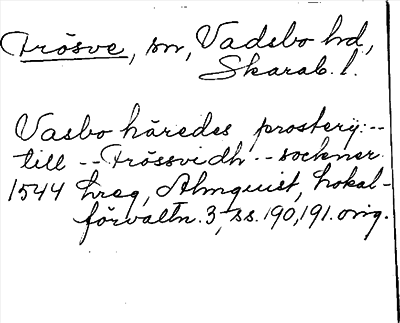 Frösve, sn, Vadsbo hd,
Skarab. l.
Vasbo häredes prostery: --
till -- Frössvidh -- sockner
1544 hreg, Almquist, Lokal-
förvaltn. 3, ss. 190, 191. orig.